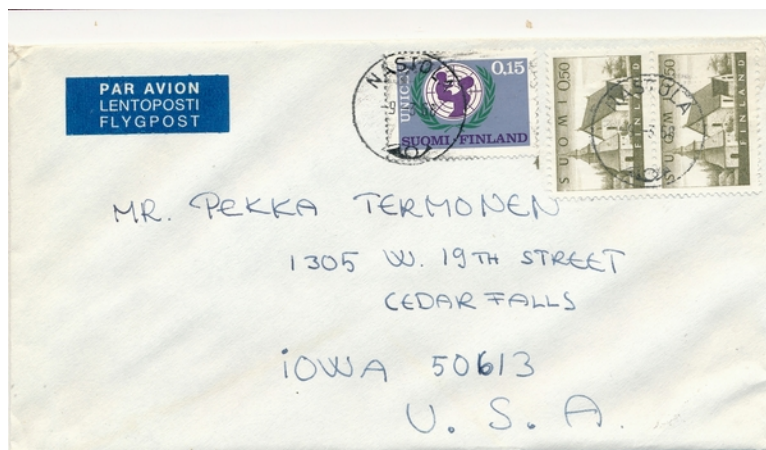 PAR AVION
LENTOPOSTI
FLYGPOST
NASTOLA
UNICEF
0,15
SUOMI-FINLAND
0,50
SUOMI
FINLAND
0,50
SUOMI
FINLAND
NASTOLA
MR. PEKKA TERMONEN
1305 W. 19TH STREET
CEDAR FALLS
IOWA 50613
U.S.A.